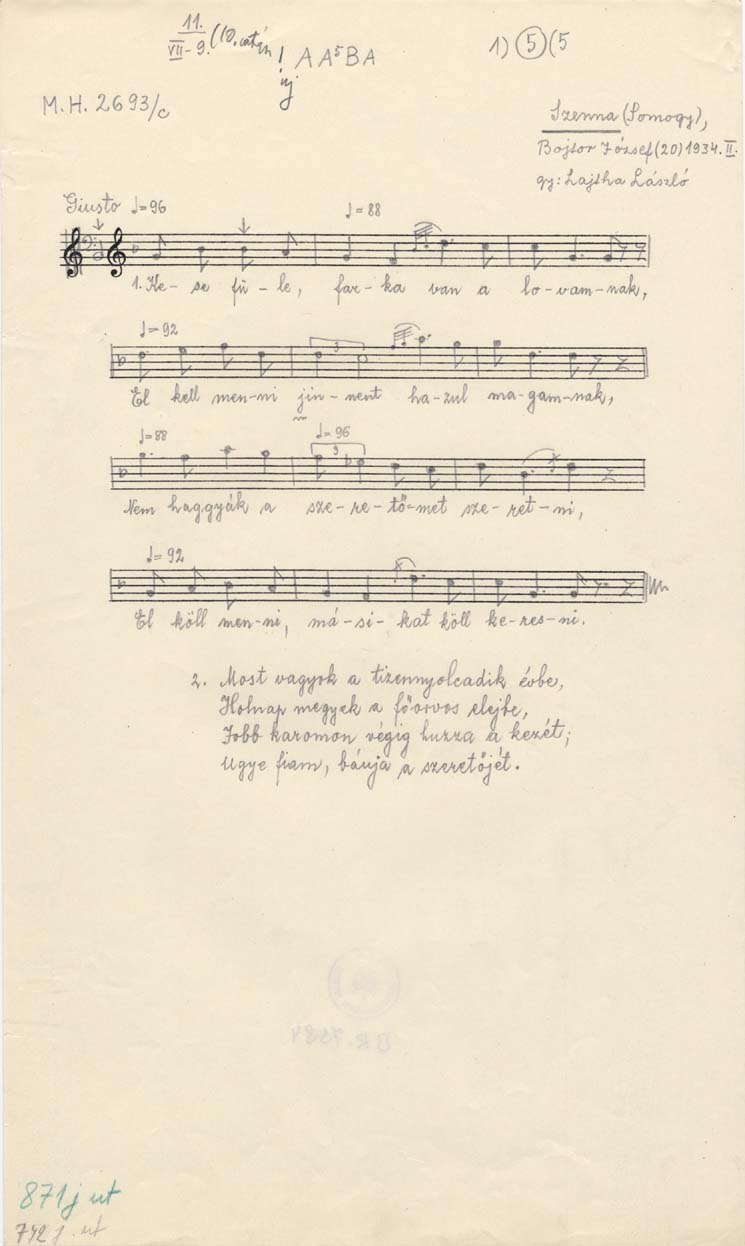 11.
VII-9. (10. után
! új
A A⁵ B A
1) 5 (5
M.H. 2693/c
Szenna (Somogy),
Bojtor József (20) 1934. II.
gy: Lajtha László
Giusto ♩=96 ♩=88
1. Ke- se fü - le, far - ka van a lo - vam - nak,
♩=92
El kell men - ni jin - nent ha - zul ma - gam - nak,
♩=88 ♩=96
3
Nem haggyák a sze - re - tő - met sze - ret - ni,
♩=92
El köll men - ni, má - si - kat köll ke - res - ni.
2. Most vagyok a tizennyolcadik évbe,
Holnap megyek a főorvos elejbe,
Jobb karomon végig huzza a kezét;
Ugye fiam, bánja a szeretőjét.
871j ut
772 j. ut